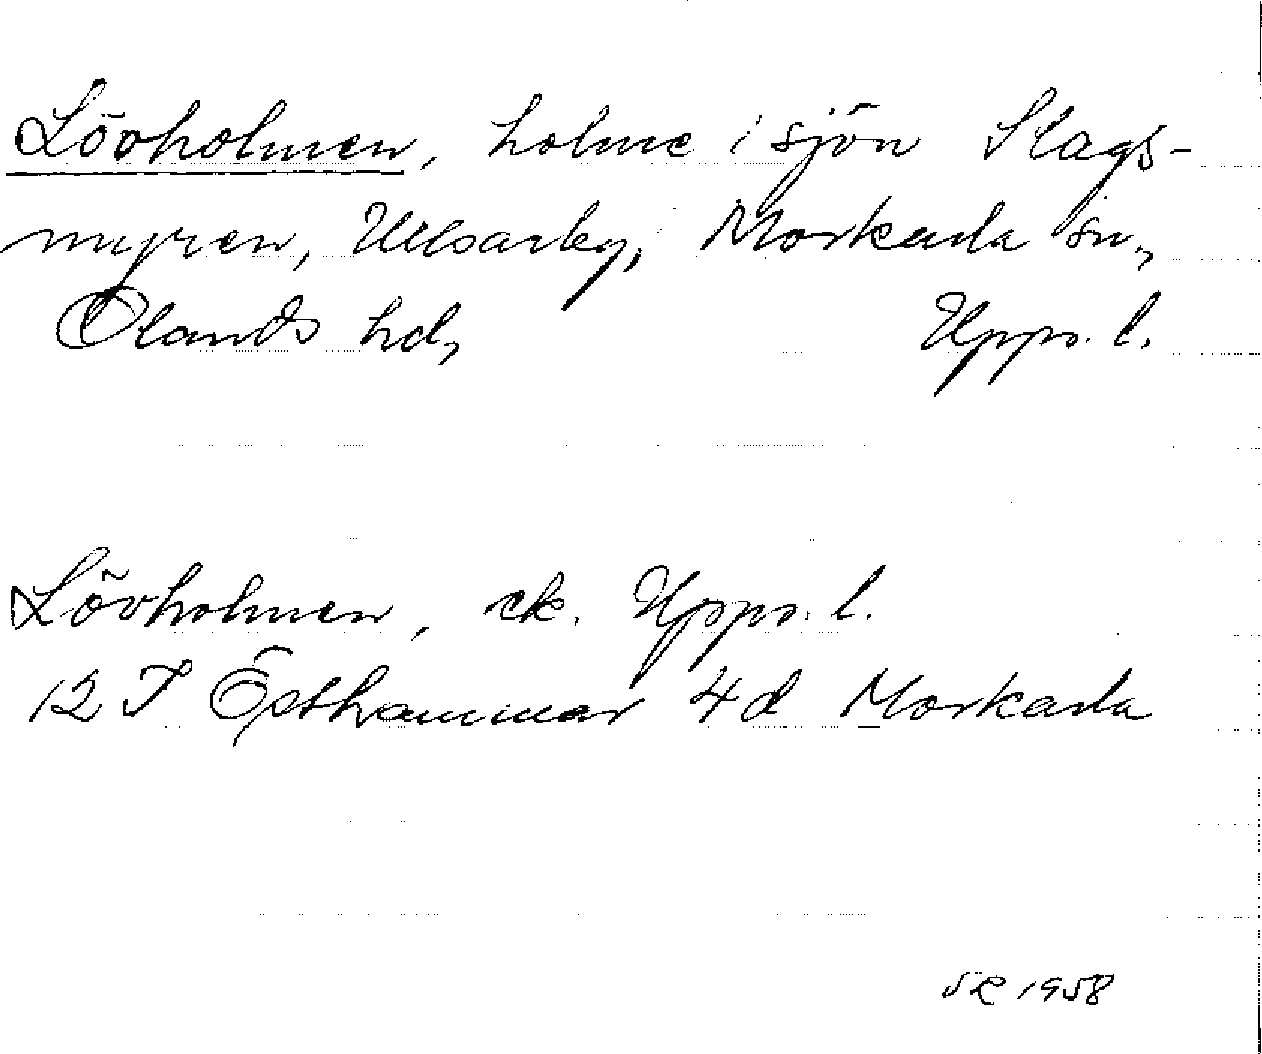 Lövholmen, holme i sjön Slags-
myren, Ullsarby, Morkarla sn.,
Olands hd,                    Upps. l.
Lövholmen, ek. Upps. l.
12 I Östhammar 4d Morkarla
SR 1958